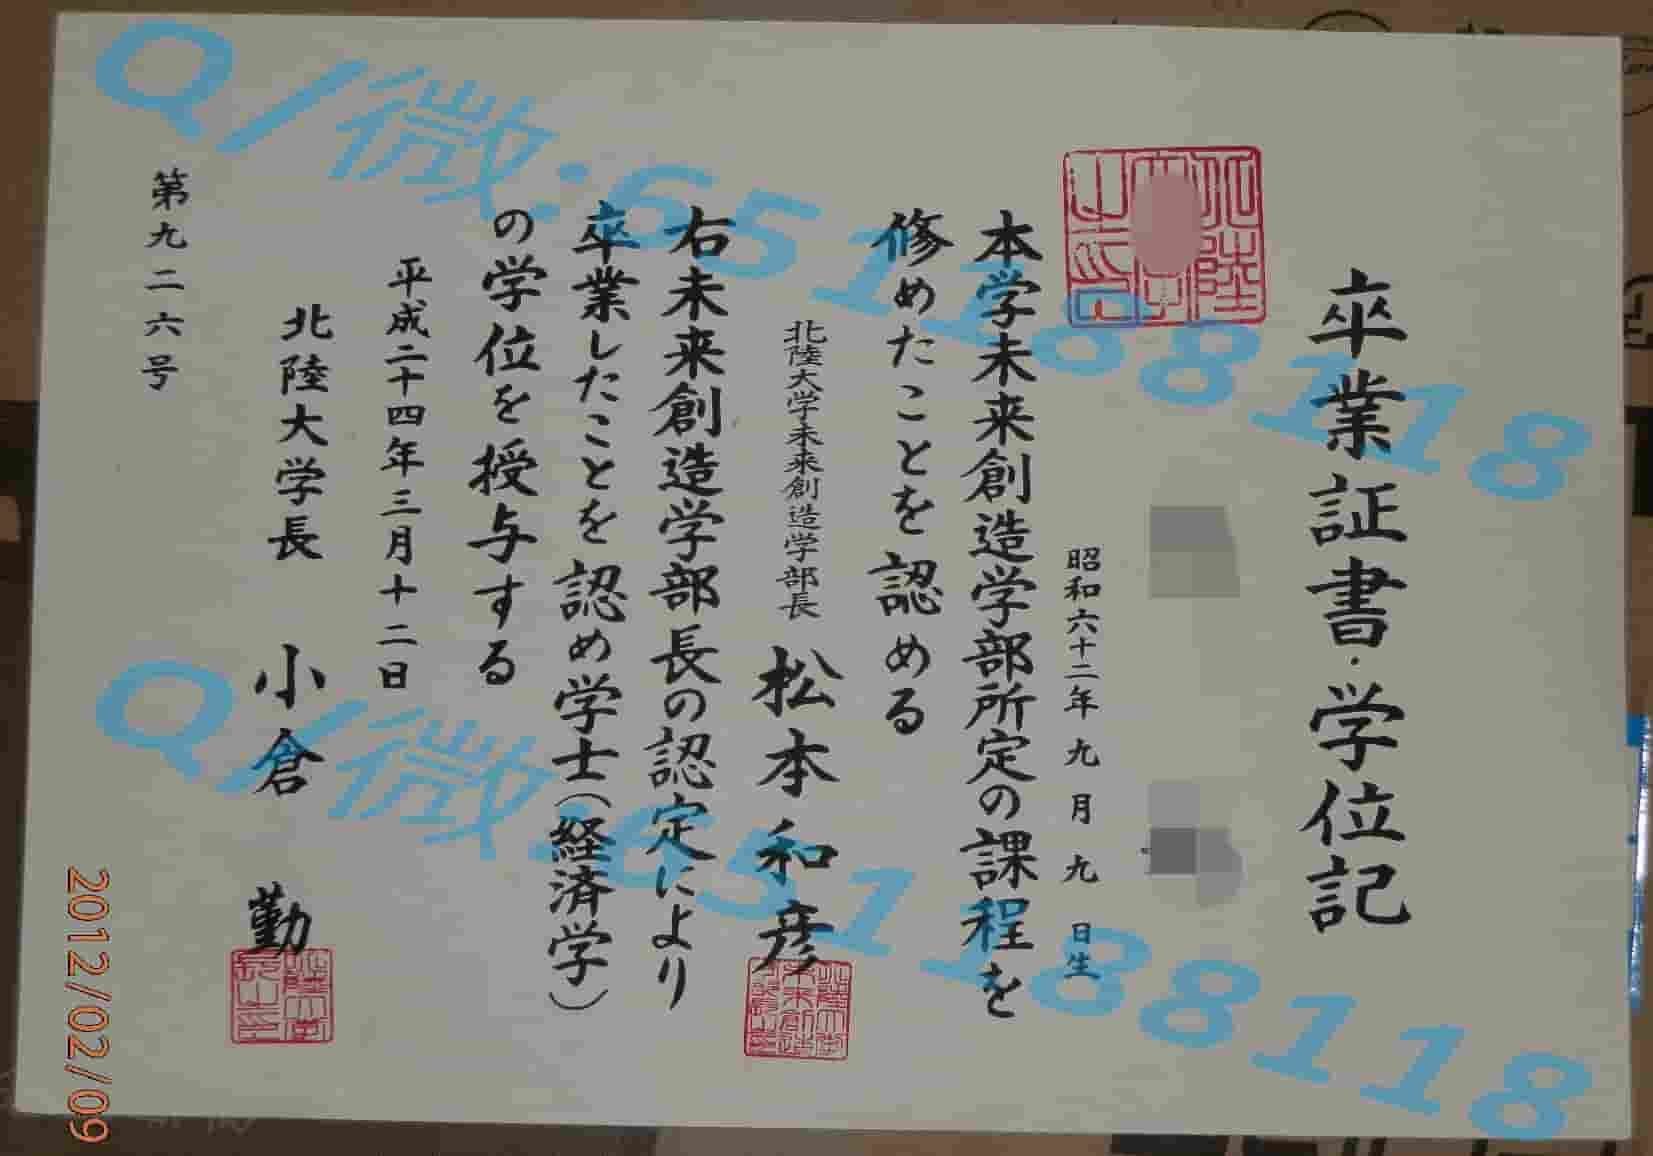 卒業証書・学位記
昭和六十二年九月九日生
本学未来創造学部所定の課程を
修めたことを認める
北陸大学未来創造学部長 松本和彦
右未来創造学部長の認定により
卒業したことを認め学士(経済学)
の学位を授与する
平成二十四年三月十二日
北陸大学長 小倉 勤
第九二六号
Q/微:651188118
Q/微:651188118
2012/02/09